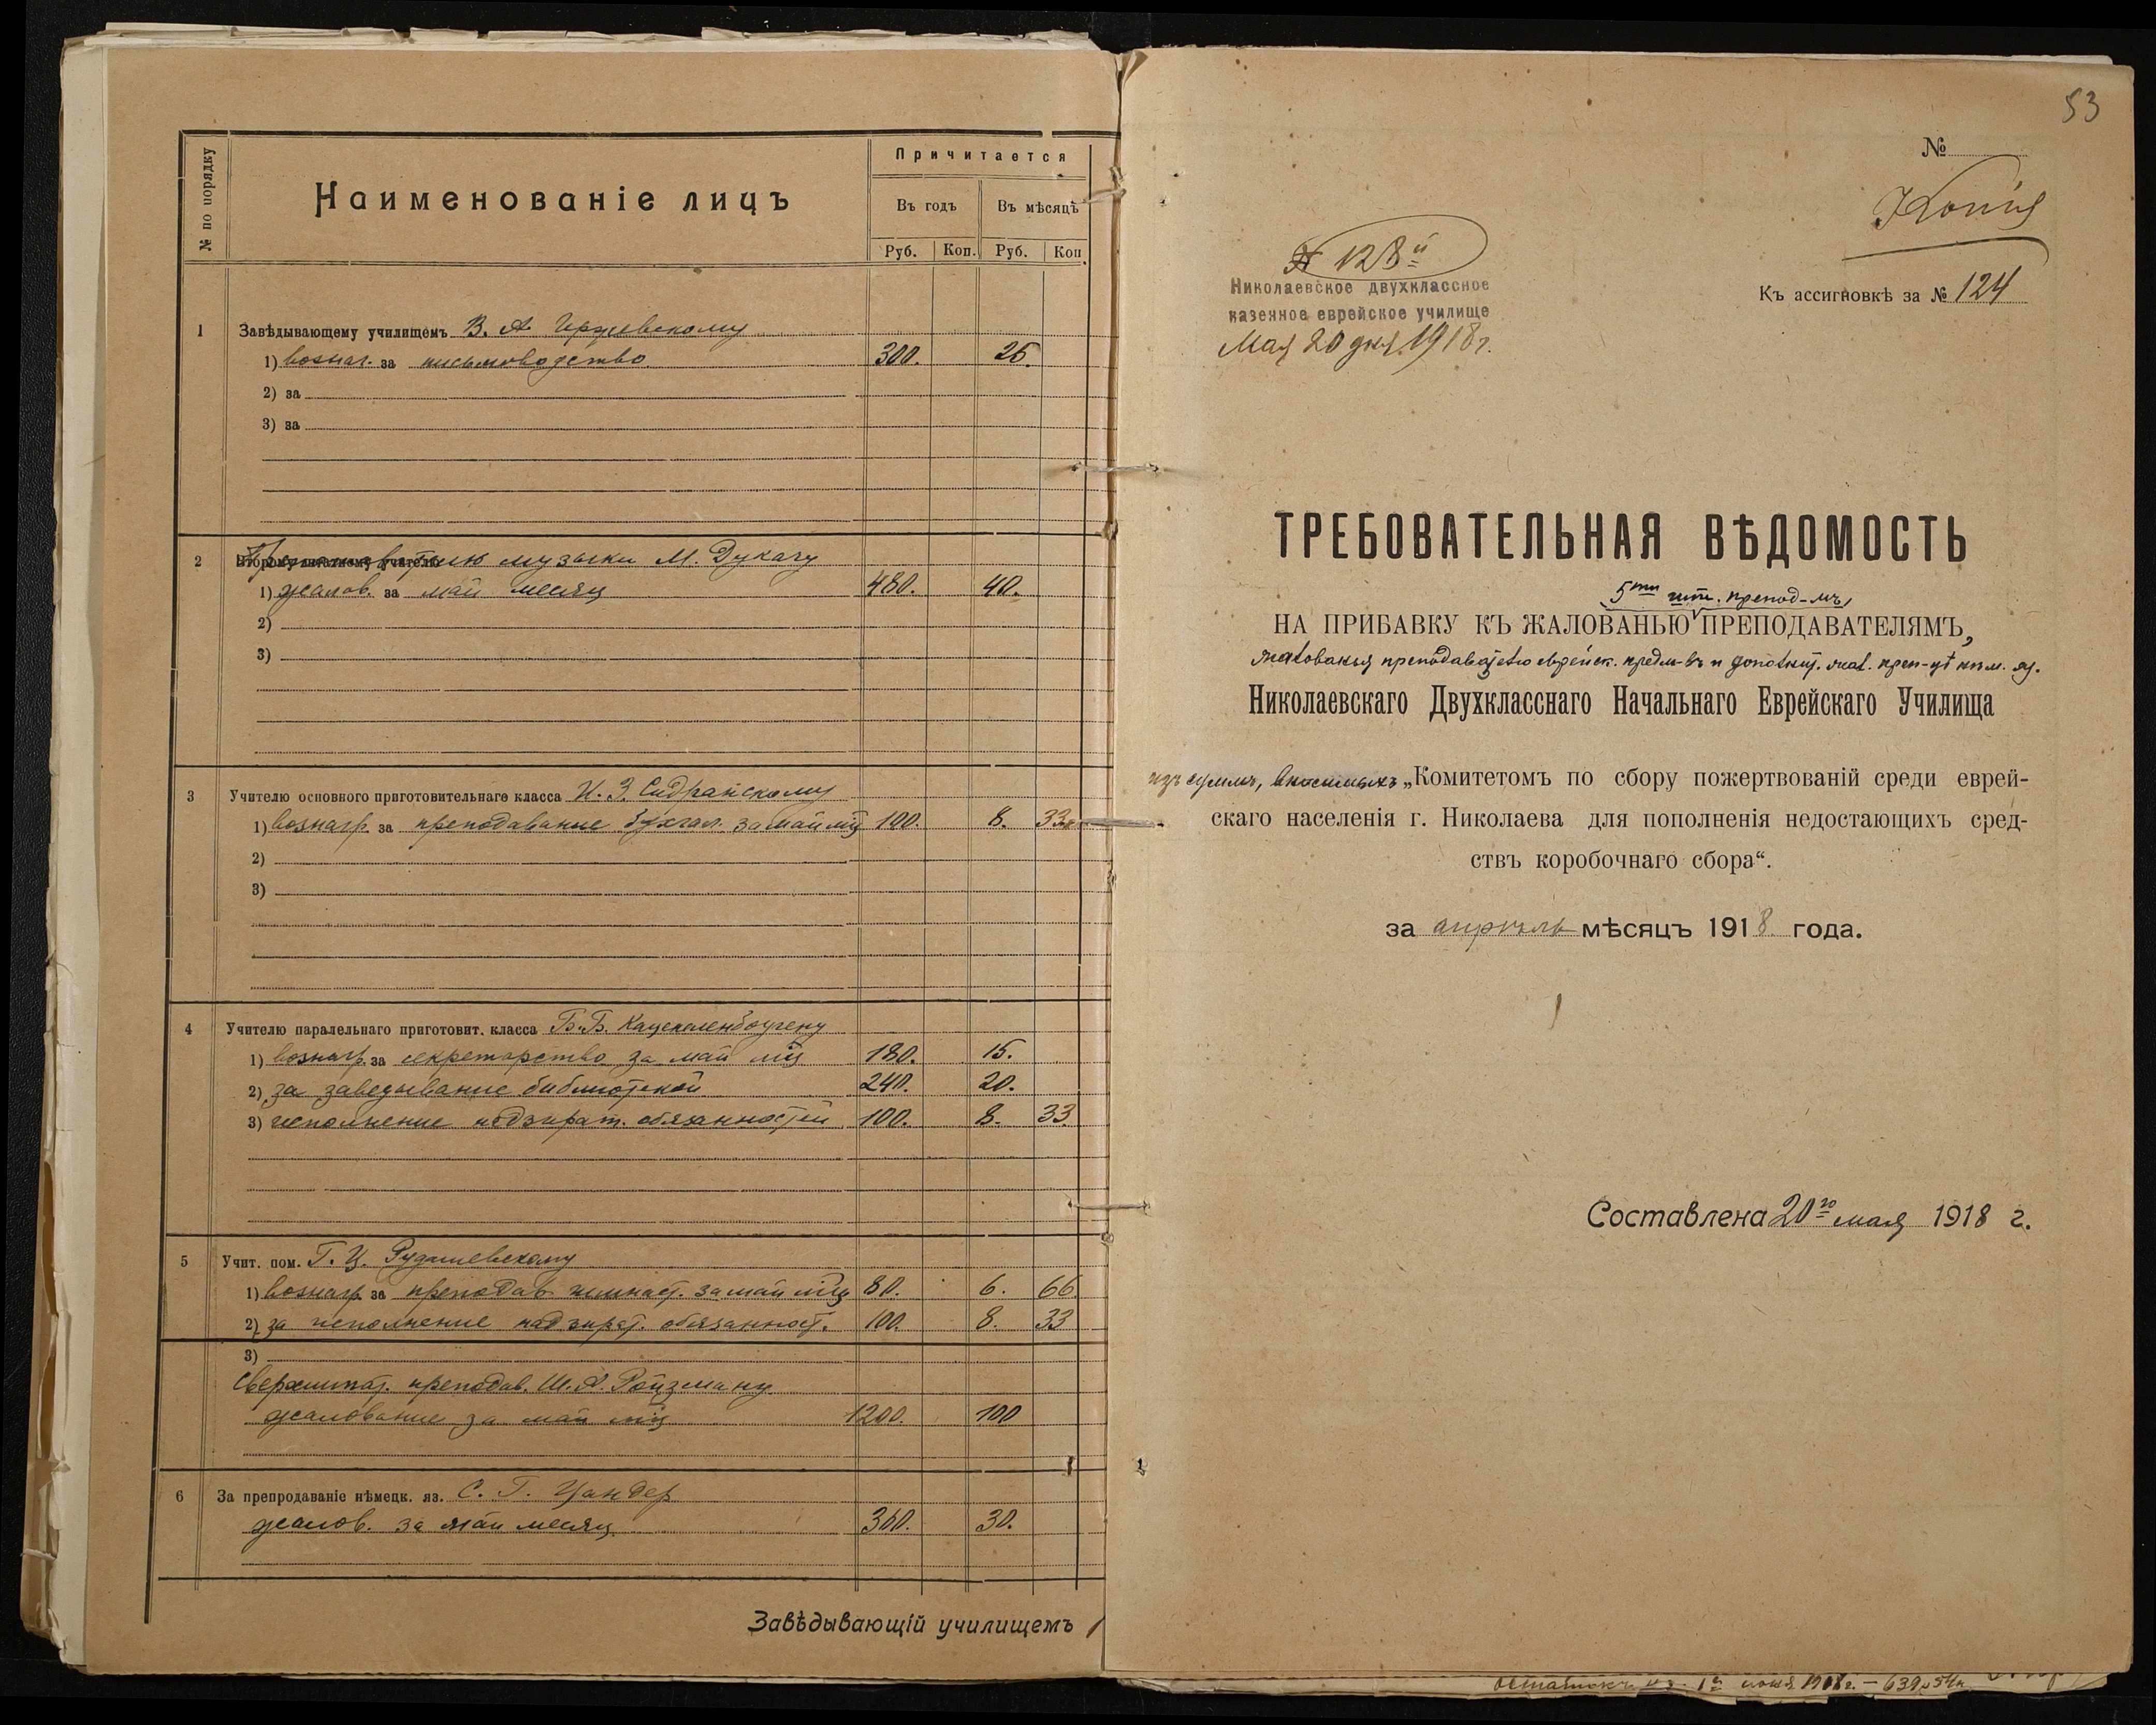 № по порядку
Наименованіе лицъ
Причитается
Въ годъ
Въ мѣсяцъ
Руб. Коп. Руб. Коп.
1 Завѣдывающему училищемъ В. А.
1) вознаг. за письмоводство 300. 25.
2) за
3) за
2 Второму штатному учителю Преподавателю музыки М. Дукачу
1) жалов. за май месяц 480. 40.
2)
3)
3 Учителю основного приготовительнаго класса И. З. Сидранскому
1) вознагр. за преподавание бухгал. за май мц 100. 8. 33
2)
3)
4 Учителю паралельнаго приготовит. класса Б. Б. Каценеленбогену
1) вознагр. за секретарство за май мц 180. 15.
2) за заведывание библиотекой 240. 20.
3) исполнение надзират. обязанностей 100. 8. 33
5 Учит. пом. Г. Ц. Рудашевскому
1) вознагр. за преподав. гимнаст. за май мц 80. 6. 66
2) за исполнение надзират. обязанност. 100. 8. 33
3)
Сверхштат. преподав. Ш. А. Ройзману
жалование за май мц 1200. 100
6 За препродаваніе нѣмецк. яз. С. Г. Цандер
жалов. за май месяц 360. 30.
Завѣдывающій училищемъ
53
№
Копия
№ 128й
Николаевское двухклассное
казенное еврейское училище
Мая 20 дня 1918 г.
Къ ассигновкѣ за № 124
ТРЕБОВАТЕЛЬНАЯ ВѢДОМОСТЬ
5ти шт. препод-мъ
НА ПРИБАВКУ КЪ ЖАЛОВАНЬЮ ПРЕПОДАВАТЕЛЯМЪ,
жалованья преподавателю еврейск. предм-въ и дополнит. жал. преп-цѣ нѣм. яз.
Николаевскаго Двухкласснаго Начальнаго Еврейскаго Училища
изъ суммъ, вносимыхъ „Комитетомъ по сбору пожертвованій среди еврей-
скаго населенія г. Николаева для пополненія недостающихъ сред-
ствъ коробочнаго сбора“.
за апрѣль мѣсяцъ 1918 года.
Составлена 20го мая 1918 г.
Остатокъ на 1е июня 1918 г. — 639 р 54 к